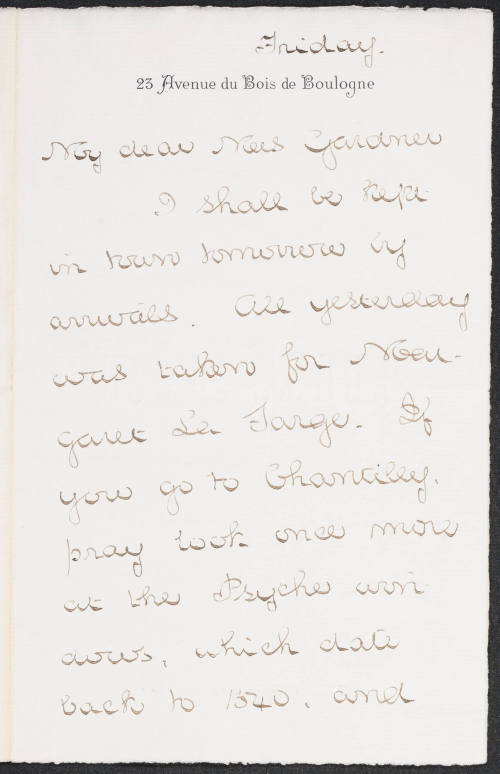 Friday.
23 Avenue du Bois de Boulogne
My dear Mrs Gardner
I shall be kept
in town tomorrow by
arrivals. All yesterday
was taken for Mar-
garet La Farge. If
you go to Chantilly,
pray look once more
at the Psyche win-
dows, which date
back to 1540, and